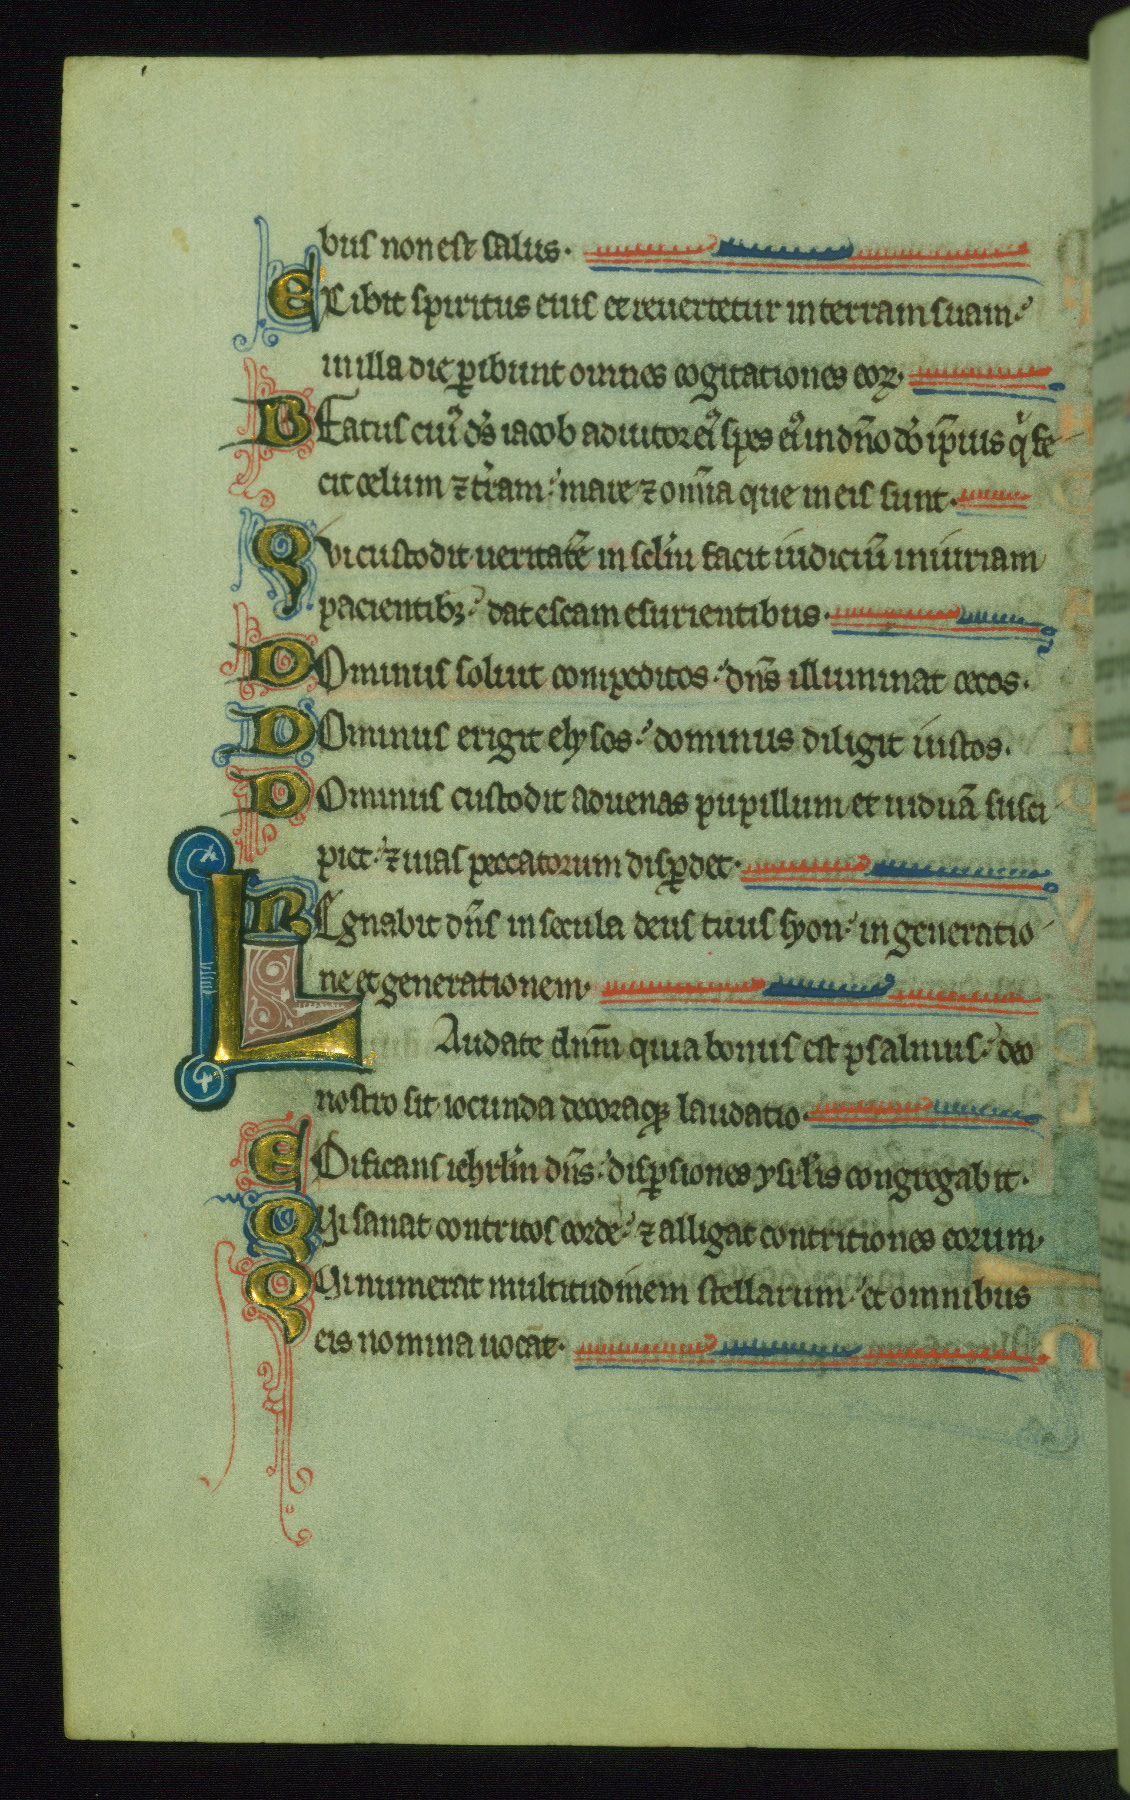 bus non est salus.
Exibit spiritus eius et reuertetur in terram suam:
in illa die p̱ibunt omnes cogitationes eoꝝ.
Beatus cuiꝰ ds̄ iacob adiutor eiꝰ spes eiꝰ in dn̄o do̅ ip̄ius qͥ fe
cit celum ⁊ tr̄am: mare ⁊ omīa que in eis sunt.
Qui custodit ueritatē in sclm̄ facit iudiciū iniuriam
pacientibꝫ: dat escam esurientibus.
Dominus soluit compeditos: dn̄s illuminat cecos.
Dominus erigit elysos: dominus diligit iustos.
Dominus custodit aduenas pupillum et uiduā susci
piet: ⁊ uias peccatorum disꝑdet.
Regnabit dn̄s in secula deus tuus syon: in generatio
ne et generationem.
Laudate dnm̄ quia bonus est psalmus: deo
nostro sit iocunda decoraqꝫ laudatio.
Edificans iehrlm̄ dn̄s: disꝑsiones ysrl̄is congregabit.
Qui sanat contritos corde: ⁊ alligat contritiones eorum.
Qui numerat multitudinem stellarum: et omnibus
eis nomina uocat.